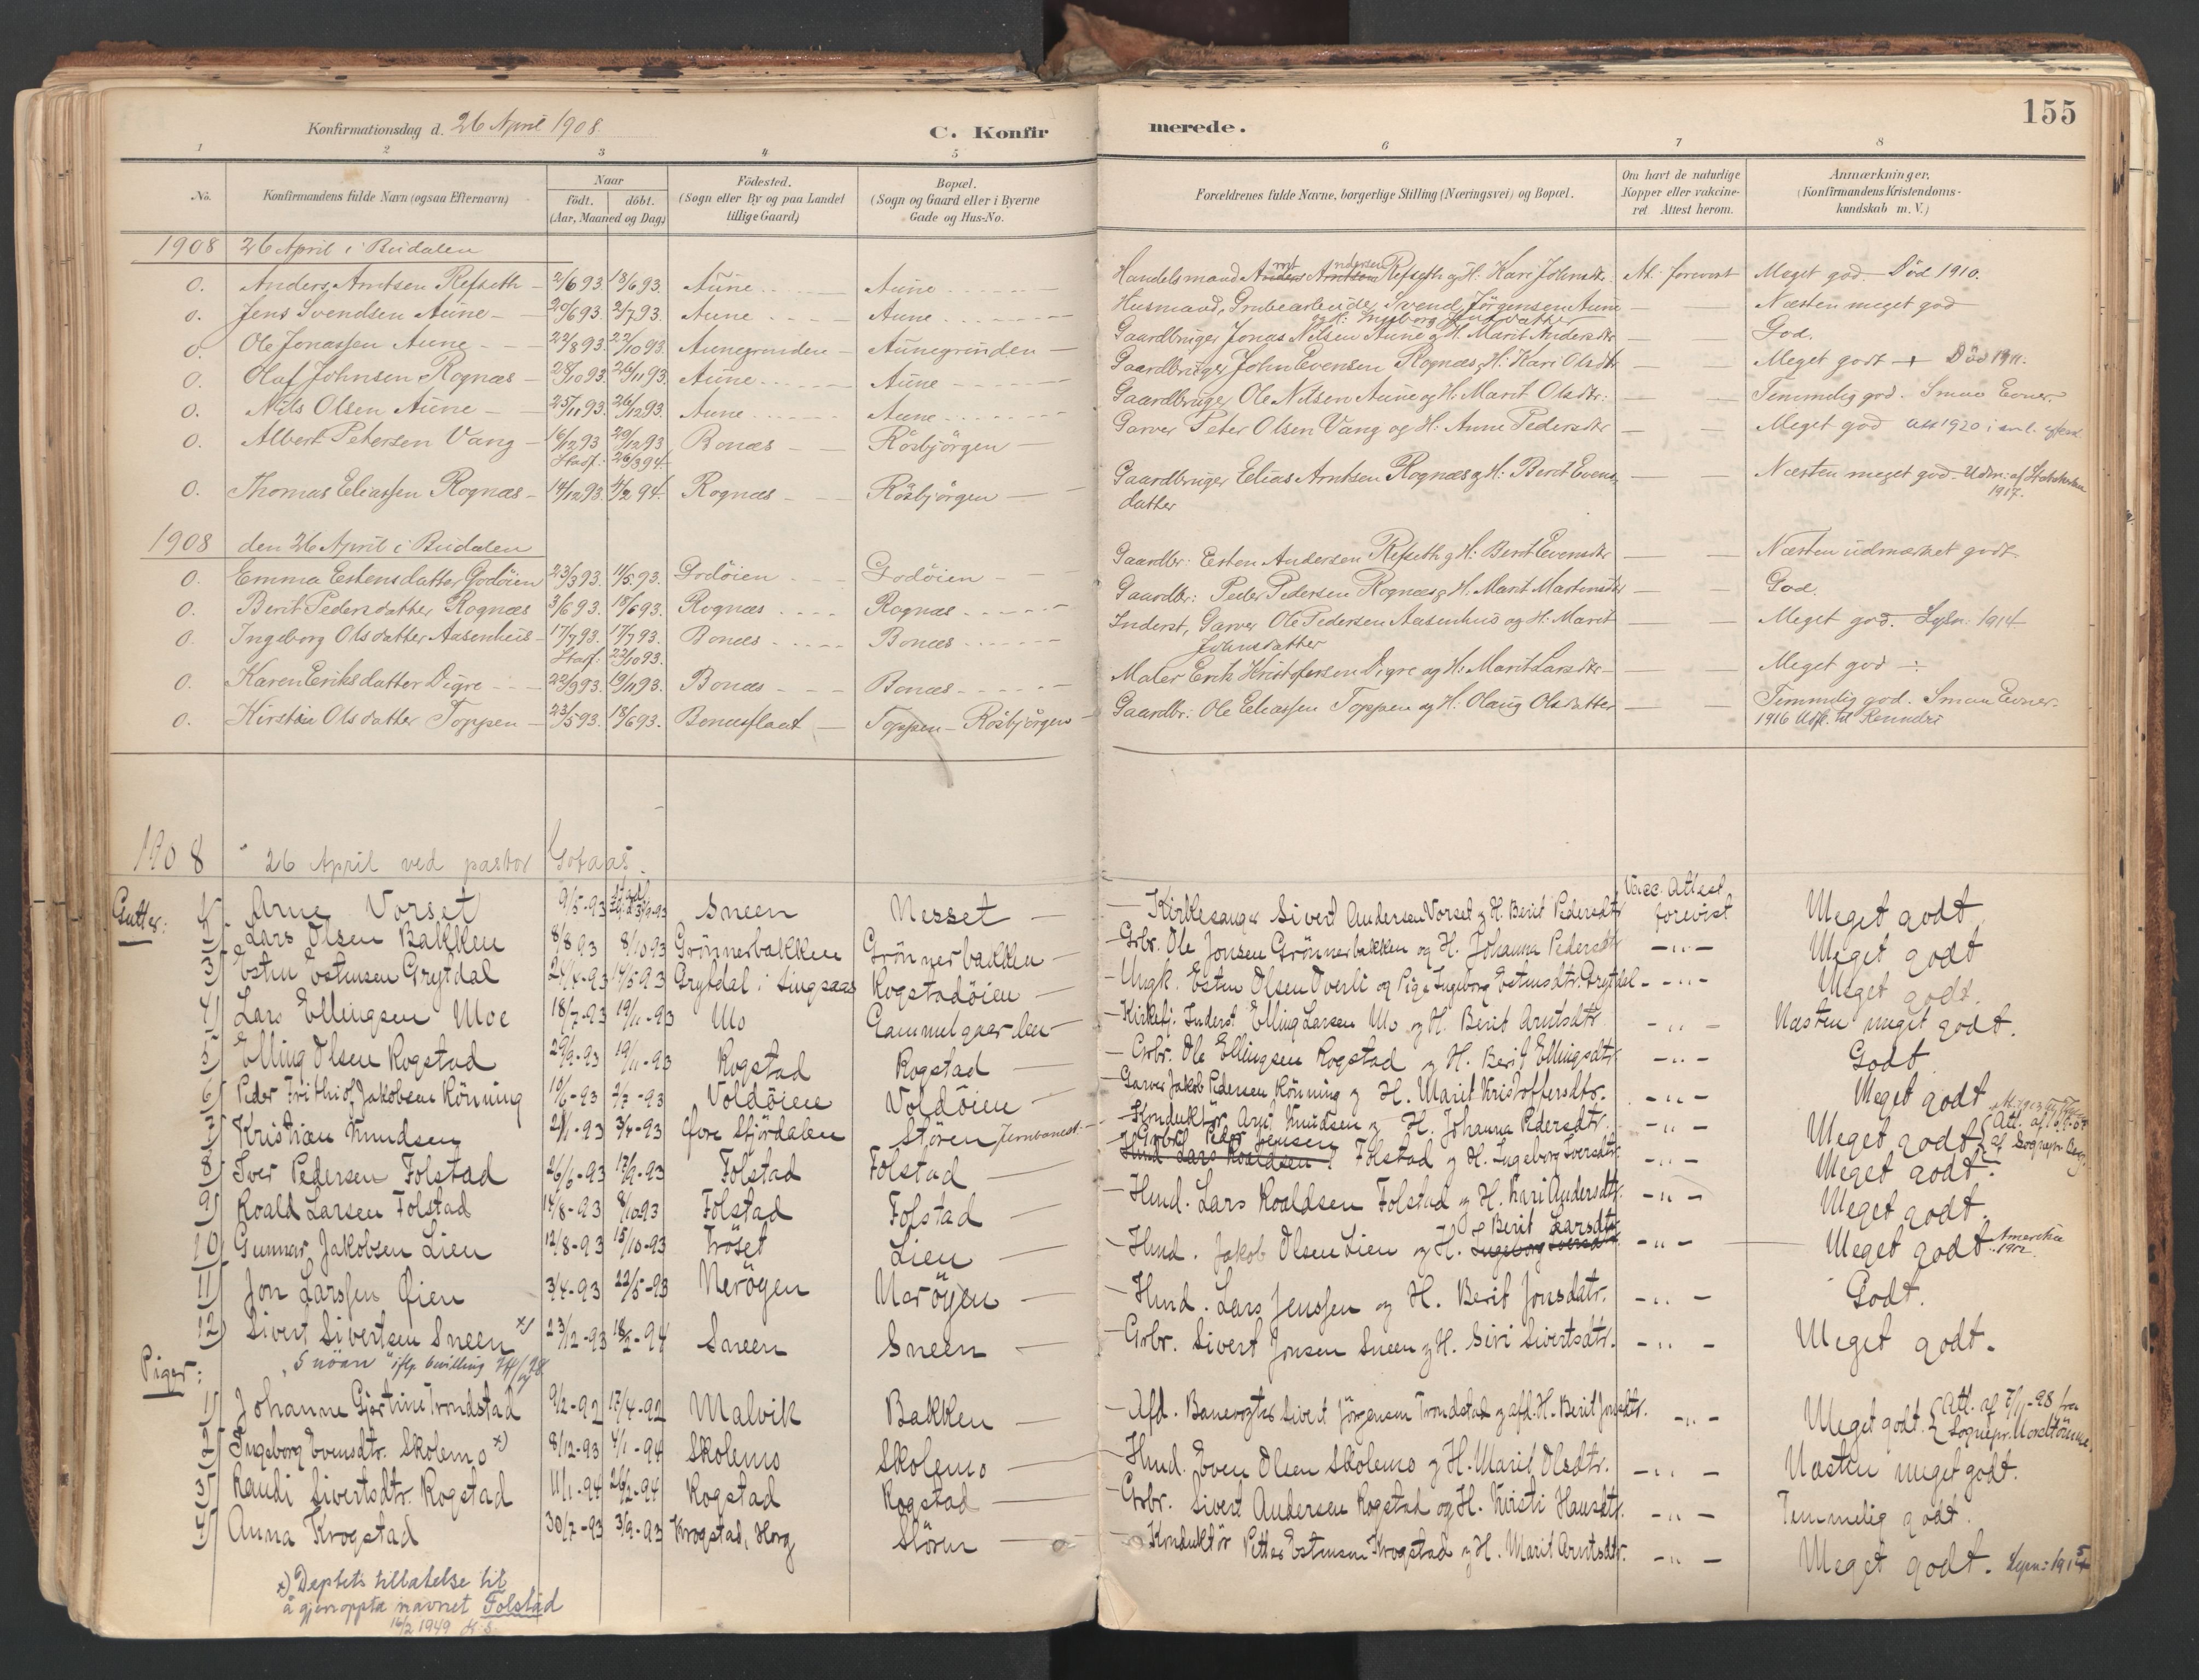 155
Konfirmationsdag d. 26 April 1908.
C. Konfirmerede.
1 2 3 4 5 6 7 8
No. Konfirmandens fulde Navn (ogsaa Efternavn) Naar født. døbt. (Aar, Maaned og Dag) Födested. (Sogn eller By og paa Landet tillige Gaard) Bopæl. (Sogn og Gaard eller i Byerne Gade og Hus-No. Forældrenes fulde Navne, borgerlige Stilling (Næringsvei) og Bopæl. Om havt de naturlige Kopper eller vaccineret. Attest herom. Anmærkninger. (Konfirmandens Kristendomskundskab m. V.)
1908 26 April i Budalen
0. Anders Arntsen Refseth 2/6 93 18/6 93. Aune Aune Handelsmand Arnt Andersen Refseth og H: Kari Johnsdtr. At. forevist Meget god Död 1910.
0. Jens Svendsen Aune 20/6 93. 2/7 93. Aune Aune Husmand, Grubearbeider Svend Jörgensen Aune og H: Ingeborg Næsten meget god
0. Ole Jonassen Aune 22/8 93. 22/10 93. Aunegrinden Aunegrinden Gaardbruger Jonas Nilsen Aune og H. Marit Andersdtr God.
0. Olaf Johnsen Rognæs 28/10 93. 26/11 93. Aune Aune Gaardbruger John Evensen Rognæs og H: Kari Olsdtr Meget godt + Död 1911.
0. Nils Olsen Aune 25/11 93. 26/12 93. Aune Aune Gaardbruger Ole Nilsen Aune og H: Marit Olsdtr: Temmelig god. Smaa Evner.
0. Albert Petersen Vang 16/12 93 29/12 93 Stadf: 26/3 94 Bonæs Rösbjörgen Garver Peter Olsen Vang og H: Anne Pedersdtr Meget god
0. Thomas Eliassen Rognæs 14/12 93. 4/2 94. Rognæs Rösbjörgen Gaardbruger Elias Arntsen Rognæs og H: Berit Evensdatter Næsten meget god. Udm: af Statskirken 1917.
1908 den 26 April i Budalen
0. Emma Estensdatter Godöien 23/3 93. 11/5. 93. Godöien Godöien Gaardbr: Esten Andersen Refseth og H: Berit Evensdtr Næsten udmærket godt
0. Berit Pedersdatter Rognæs 3/6 93. 18/6 93. Rognæs Rognæs Gaardbr: Peder Pedersen Rognæs og H: Marit Martinsdtr God.
0. Ingeborg Olsdatter Aasenhus 17/7 93. 17/7 93. Stadf: 22/10 93. Bonæs Bonæs Inderst, Garver Ole Pedersen Aasenhus og H: Marit Johnsdatter Meget god. Lysn: 1914
0. Karen Eriksdatter Digre 22/9 93. 19/11 93. Bonæs Bonæs Maler Erik Kristofersen Digre og H: Marit Larsdtr Meget god
0. Kirstie Olsdatter Toppen 23/5 93. 18/6 93. Bonæsflaat Toppen - Rösbjörgen Gaardbr: Ole Eliassen Toppen og H: Olaug Olsdatter Temmelig god. Smaa Evner.
1916 Udfl. til Rennebu
1908 26 April ved pastor Gotaas.
Gutter:
1) Arne Vorset 9/5-93 Sneen Nesset Kirkesanger Sivert Andersen Vorset og H. Berit Pedersdtr Vacc. Attest forevist Meget godt.
2) Lars Olsen Bakken 8/8 93 8/10 93 Grönnerbakken Grönnerbakken Grbr. Ole Jonsen Grönnerbakken og H. Johanna Pedersdtr -"- Meget godt
3) Esten Estensen Grytdal 24/4-93 14/5 93 Grytdal i Singsaas Rogstadöien Ungk. Esten Olsen Overli og Pige Ingeborg Estensdtr. Grytdal -"- Meget godt.
4) Lars Ellingsen Moe 18/7-93 19/11-93 Mo Gammelgaarden Kirketj. Inderst Elling Larsen Mo og H. Berit Arntsdtr -"- Næsten meget godt.
5) Elling Olsen Rogstad 29/9-93 19/11-93 Rogstad Rogstad Grbr. Ole Ellingsen Rogstad og H. Berit Ellingsdtr. -"- Godt
6) Peder Frithiof Jakobsen Rönning 10/6-93 2/7-93 Voldöien Voldöien Garver Jakob Pedersen Rönning og H. Marit Kristoffersdtr. -"- Meget godt
7) Kristian Knudsen 21/1-93 3/4-93 Övre Stjördalen Stören Jernbanest. Konduktör Knudsen og H. Johanna Pedersdtr. -"- Meget godt
8) Iver Pedersen Folstad 26/6-93 17/9-93 Folstad Folstad Grbr. Peder Jensen Hmd Lars Roaldsen Folstad og H. Ingeborg Iversdtr -"- Meget godt.
9) Roald Larsen Folstad 14/8-93 8/10 93 Folstad Folstad Hmd. Lars Roaldsen Folstad og H. Kari Andersdtr. -"- Meget godt.
10) Gunnar Jakobsen Lien 12/8-93 15/10-93 Tröset Lien Hmd. Jakob Olsen Lien og H. Ingeborg Iversdtr Berit Larsdtr -"- Meget godt Amerika 1912.
11) Jon Larssen Öien 3/4-93 22/5-93 Nerögen Merögen Hmd. Lars Jenssen og H. Berit Jonsdatr. -"- Godt.
12) Sivert Sivertsen Sneen x) 23/12-93 18/2-94 Sneen Sneen Grbr. Sivert Jonsen Sneen og H. Siri Sivertsdtr. -"- Meget godt.
"Snöan" iflg. bevilling
Piger:
1) Johanne Gjertine Trondstad 9/2-92 17/4-92 Malvik Bakken Afd. Banevogter Sivert Jörgensen Trondstad og afd. H. Berit Jonsdtr. -"- Meget godt. Att. af 7/11-98 fra Sognepr.
2) Ingeborg Evensdtr. Skolemo x) 8/12-93 4/1-94 Skolemo Skolemo Hmd. Even Olsen Skolemo og H. Marit Olsdtr. -"- Næsten meget godt.
3) Randi Sivertsdtr. Rogstad 11/1-94 26/2-94 Rogstad Rogstad Grbr. Sivert Andersen Rogstad og H. Kirsti Hansdtr. -"- Temmelig godt.
4) Anna Krogstad 30/7-93 3/9-93 Krogstad, Horg Stören Konduktör Petter Estensen Krogstad og H. Marit Arntsdtr. -"- Meget godt. Lysn:
x) Deptets tillatelse til
å gjenoppta navnet Folstad
16/2 1949 H.S.